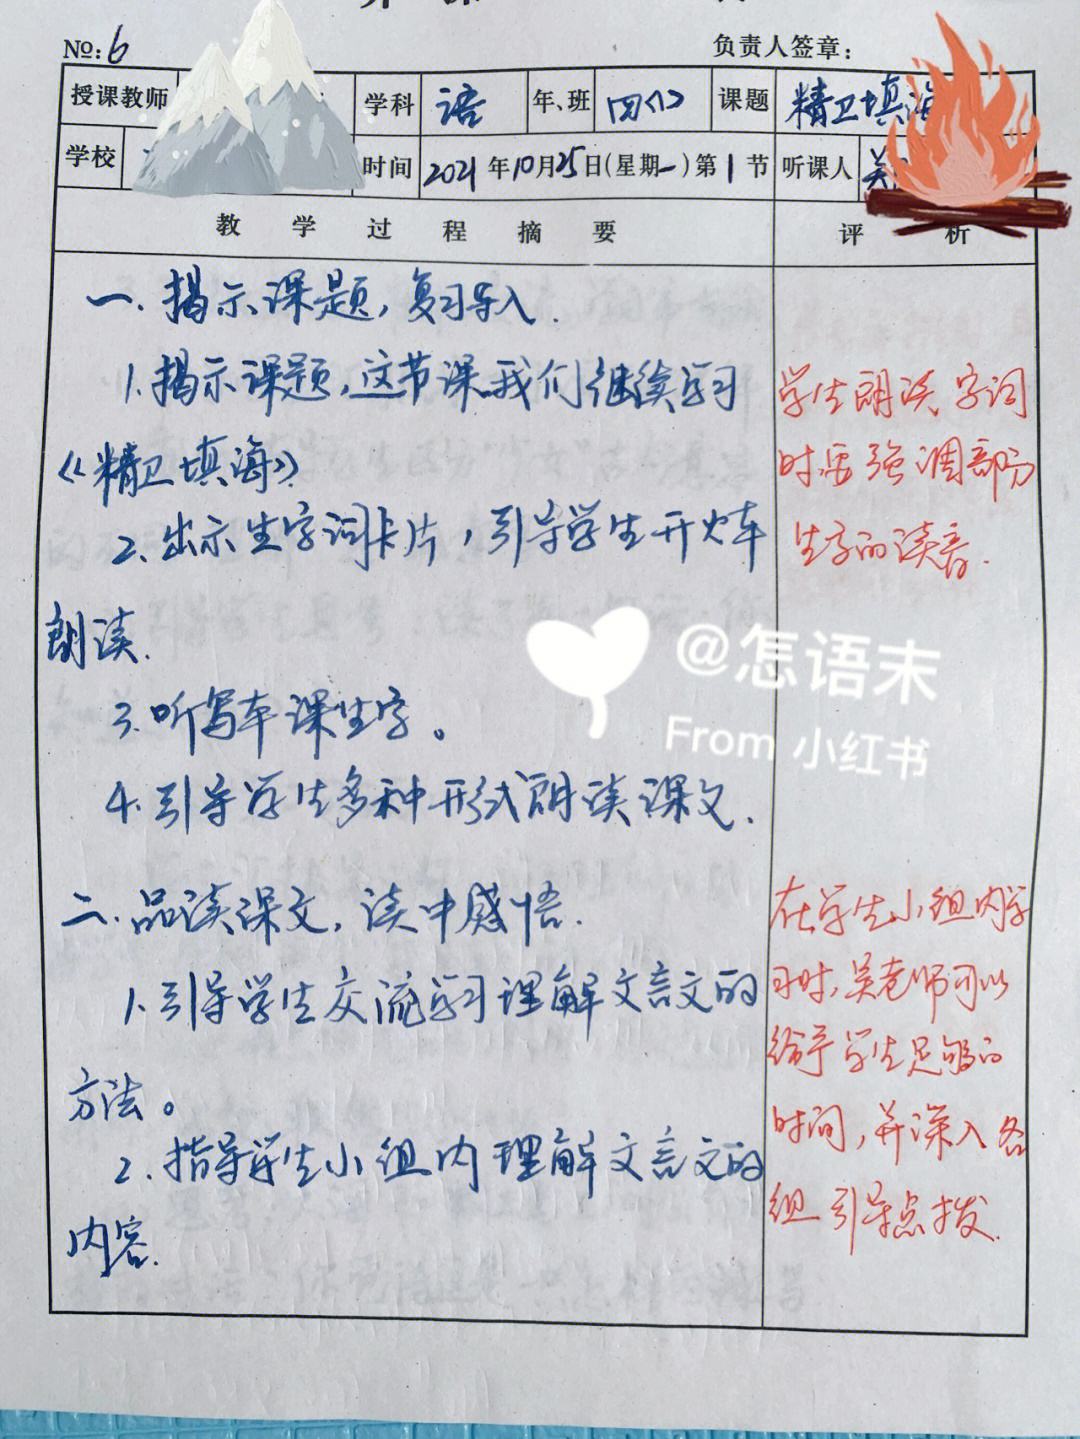 №:6 负责人签章:
授课教师 学科 语 年、班 四(1) 课题 精卫填海
学校 时间 2021年10月25日(星期一)第1节 听课人
教学过程摘要 评析
一.揭示课题,复习导入.
1.揭示课题,这节课我们继续学习
《精卫填海》
2.出示生字词卡片,引导学生开火车
朗读.
3.听写本课生字。
4.引导学生多种形式朗读课文.
二.品读课文,读中感悟.
1.引导学生交流学习理解文言文的
方法。
2.指导学生小组内理解文言文的
内容.
学生朗读字词
时要强调部分
生字的读音.
在学生小组内学
习时,吴老师可以
给予学生足够的
时间,并深入各
组引导点拨.
@怎语末
From 小红书